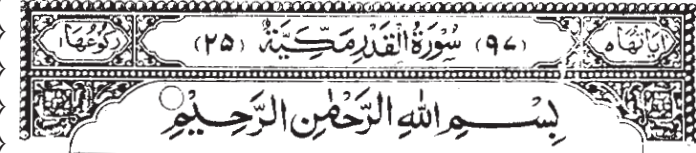 اٰيَاتُهَا ٥ (٩٧) سُوْرَةُ الْقَدْرِ مَكِّيَّةٌ (٢٥) رُكُوْعُهَا ١
بِسْمِ اللهِ الرَّحْمٰنِ الرَّحِيْمِ